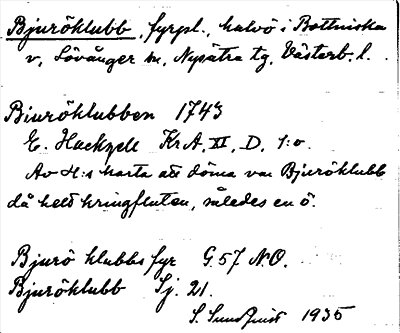 Bjuröklubb, fyrpl., halvö i Bottniska
v, Lövånger sn, Nysätra tg, Västerb. l.
Biuröklubben 1743
E. Hackzell KrA, XI, D, 1:o.
Av H:s karta att döma var Bjuröklubb
då helt kringfluten, således en ö.
Bjurö klubbs fyr G. 57 N.O.
Bjuröklubb Sj. 21.
S. Sundquist 1935